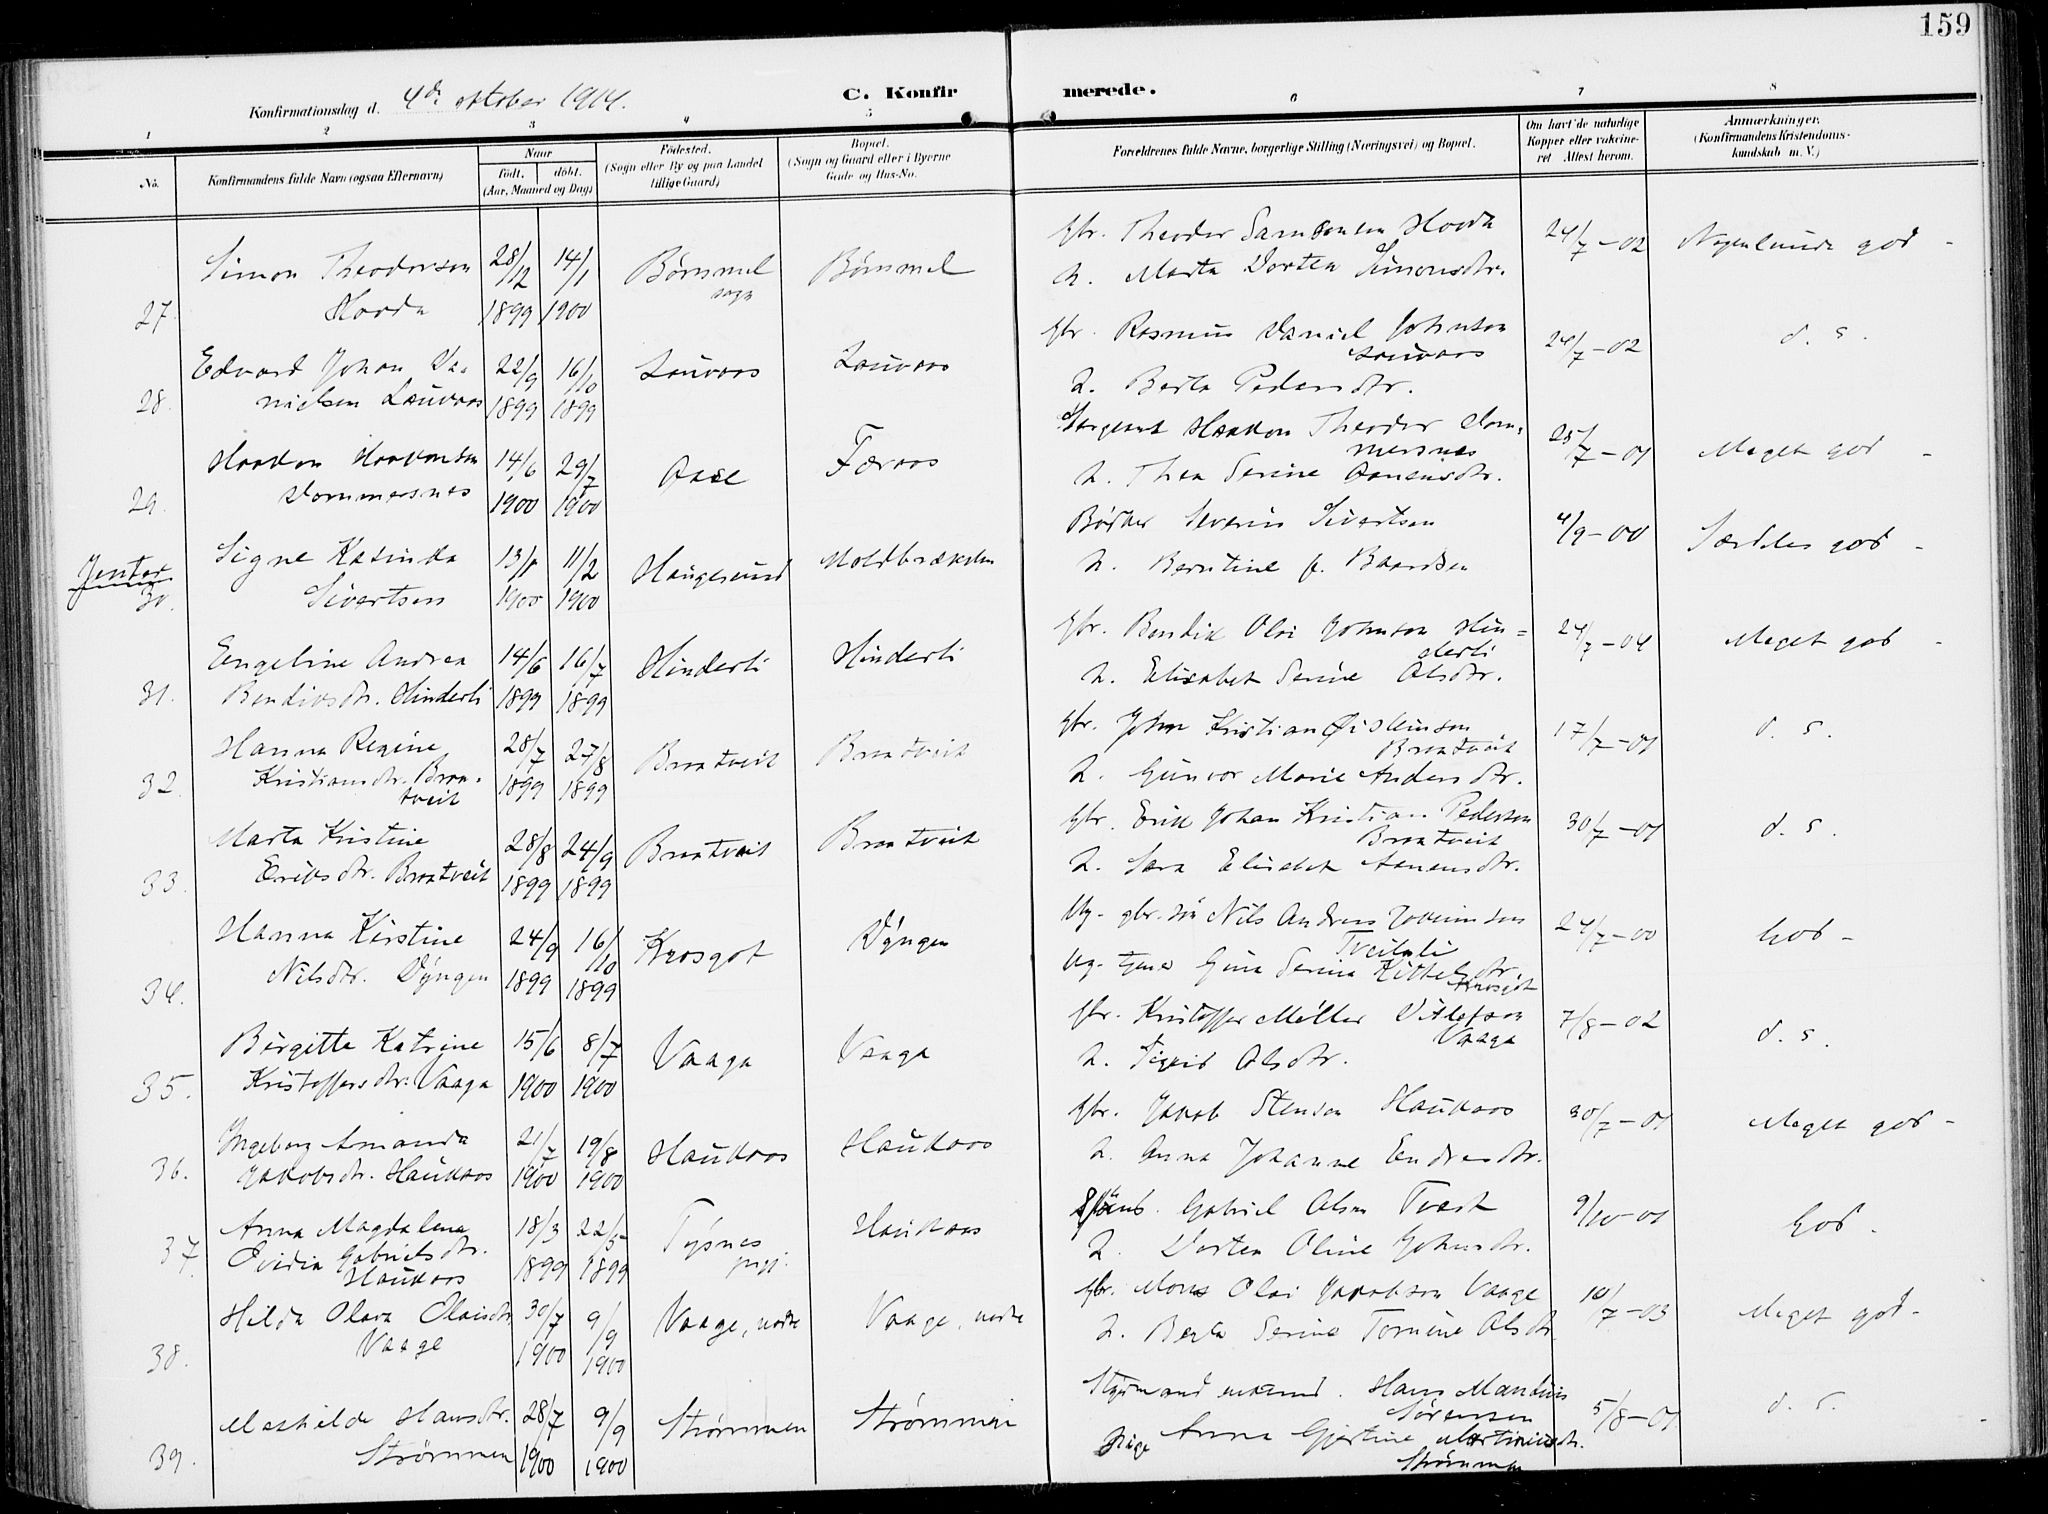 159
Konfirmationsdag d. 4de oktober 1914.
C. Konfirmerede.
1 2 3 4 5 6 7 8
No.
Konfirmandens fulde Navn (ogsaa Efternavn)
Naar
født. døbt.
(Aar, Maaned og Dag)
Fødested.
(Sogn eller By og paa Landet
tillige Gaard)
Bopæl.
(Sogn og Gaard eller i Byerne
Gade og Hus-No.
Forældrenes fulde Navne, borgerlige Stilling (Næringsvei) og Bopæl.
Om havt de naturlige
Kopper eller vakcine-
ret Attest herom.
Anmærkninger.
(Konfirmandens Kristendoms-
kundskab m. V.)
Simon Theodorsen 28/12 14/1 Bømmel Bømmel Gbr. Theodor Samsonsen Hovda 24/7-02 Nogenlunde god -
27. Hovda 1899 1900 sogn h. Marta Dortea Simonsdtr.
Edvard Johan Da- 22/9 16/10 Lauvaas Lauvaas Gbr. Rasmus Daniel Johnson 24/7-02 d. s.
Lauvaas
28. nielsen Lauvaas 1899 1899 h. Berta Pedersdtr.
Haakon Haakonsen 14/6 29/7 Aase Færaas Sergeant Haakon Theodor Dom- 25/7-01 Meget god -
mersnes
29. Dommersnes 1900 1900 h. Thea Serine Aanensdtr.
Jenter
Signe Kasinka 13/1 11/2 Haugesund Moldbrækken Bødker Severin Sivertsen 4/9-00 Særdeles god -
30. Sivertsen 1900 1900 h. Berntine f. Baardsen
Engeline Andrea 14/6 16/7 Hinderli Hinderli Gbr. Bendik Olai Johnson Hin- 24/7-04 Meget god -
derli
31. Bendiksdtr. Hinderli 1899 1899 h. Elisabet Serine Olsdtr.
Hanna Regine 28/7 27/8 Braatveit Braatveit Gbr. John Kristian Øisteinson 17/7-01 d. s.
Braatveit
32. Kristiansdtr. Braa- 1899 1899 h. Gunvor Marie Andersdtr.
tveit
Marta Kristine 28/8 24/9 Braatveit Braatveit Gbr. Erik Johan Kristian Pederson 30/7-01 d. s.
Braatveit
33. Eriksdtr. Braatveit 1899 1899 h. Sara Elisabet Aanensdtr.
Hanna Kirstine 24/9 16/10 Krosgot Dyngen Ug. gbr.søn Nils Andreas 24/7-00 God -
Tveitali
34. Nilsdtr. Dyngen 1899 1899 Ug. tjener Gina Serina Kittelsdtr.
Birgitte Katrine 15/6 8/7 Vaaga Vaaga Gbr. Kristoffer Møller Ditlefson 7/8-02 d. s.
Vaaga
35. Kristoffersdtr. Vaaga 1900 1900 h. Sigrid Olsdtr.
Ingeborg Amanda 21/7 19/8 Haukaas Haukaas Gbr. Jakob Stenson Haukaas 30/7-01 Meget god -
36. Jakobsdtr. Haukaas 1900 1900 h. Anna Johanne Endresdtr.
Anna Magdalena 18/3 22/5 Tysnes Haukaas Gabriel Olsen Tvest 9/10-01 God -
37. Ovidia Gabrielsdtr. 1899 1899 pgj. h. Dorten Oline Johnsdtr.
Haukaas
Hilda Olava Olaisdtr. 30/7 9/9 Vaage, nedre Vaage, nedre Gbr. Mons Olai Jakobson Vaage 10/7-03 Meget god -
38. Vaage 1900 1900 h. Berta Serine Tomine Olsdtr.
Mathilde Hansdtr. 28/7 9/9 Strømmen Strømmen Styrmand enkemd. Hans Mandius 5/8-01 d. s.
Sørensen
39. Strømmen 1900 1900 pige Anna Gjertine Martiniusdtr.
Strømmen